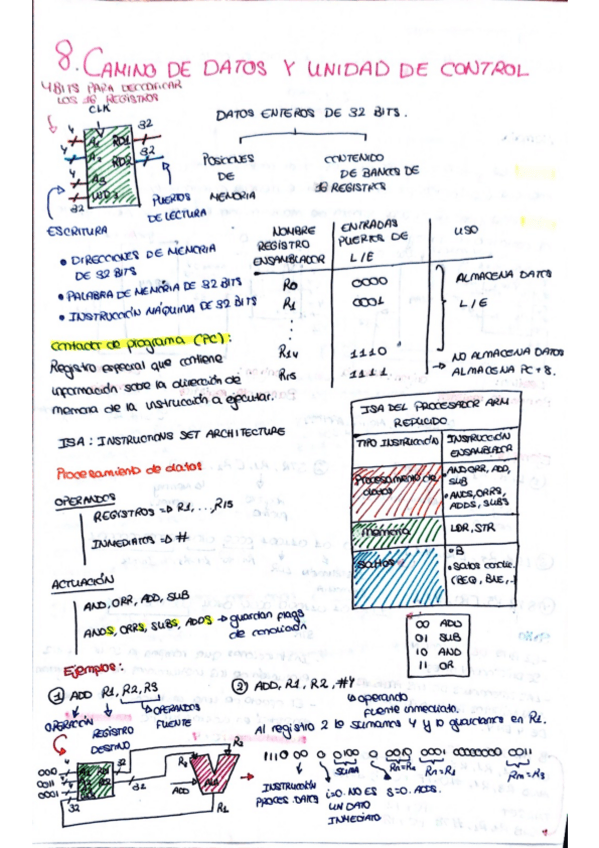 8. CAMINO DE DATOS Y UNIDAD DE CONTROL
4 BITS PARA DECODIFICAR
LOS 16 REGISTROS
CLK
DATOS ENTEROS DE 32 BITS.
4 A1 RD1 32
4 A2 RD2 32
4 A3
32 WD3
POSICIONES DE MEMORIA
CONTENIDO DE BANCO DE 16 REGISTROS
PUERTOS DE LECTURA
ESCRITURA
• DIRECCIONES DE MEMORIA
DE 32 BITS
• PALABRA DE MEMORIA DE 32 BITS
• INSTRUCCIÓN MÁQUINA DE 32 BITS
NOMBRE REGISTRO ENSAMBLADOR
ENTRADAS PUERTOS DE L/E
USO
R0 0000 ALMACENA DATOS
R1 0001 L/E
R14 1110
R15 1111
NO ALMACENA DATOS
ALMACENA PC+8.
Contador de programa (PC):
Registro especial que contiene
información sobre la dirección de
memoria de la instrucción a ejecutar.
ISA: INSTRUCTIONS SET ARCHITECTURE
ISA DEL PROCESADOR ARM
REDUCIDO
TIPO INSTRUCCIÓN INSTRUCCIÓN ENSAMBLADOR
Procesamiento de datos
• AND, ORR, ADD, SUB
• ANDS, ORRS, ADDS, SUBS
memoria LDR, STR
Saltos
• B
• Saltos condic.
(BEQ, BNE,..)
Procesamiento de datos
OPERANDOS
REGISTROS ⇒ R1,..., R15
INMEDIATOS ⇒ #
ACTUACIÓN
AND, ORR, ADD, SUB
ANDS, ORRS, SUBS, ADDS → guardan flags
de condición
00 ADD
01 SUB
10 AND
11 OR
Ejemplos:
1 ADD R1, R2, R3
OPERACIÓN
REGISTRO DESTINO
OPERANDOS FUENTE
2 ADD, R1, R2, #4
operando
fuente inmediato.
Al registro 2 le sumamos 4 y lo guardamos en R1.
1110 00 0 0100 0 0010 0001 00000000 0011
SUMA
Rm=R3
INSTRUCCIÓN PROCES. DATOS
i=0. NO ES UN DATO INMEDIATO
S=0. ADDS.
0010 4
0011 4
0001 4
32
32
R2
R3
ADD
ALU
R1